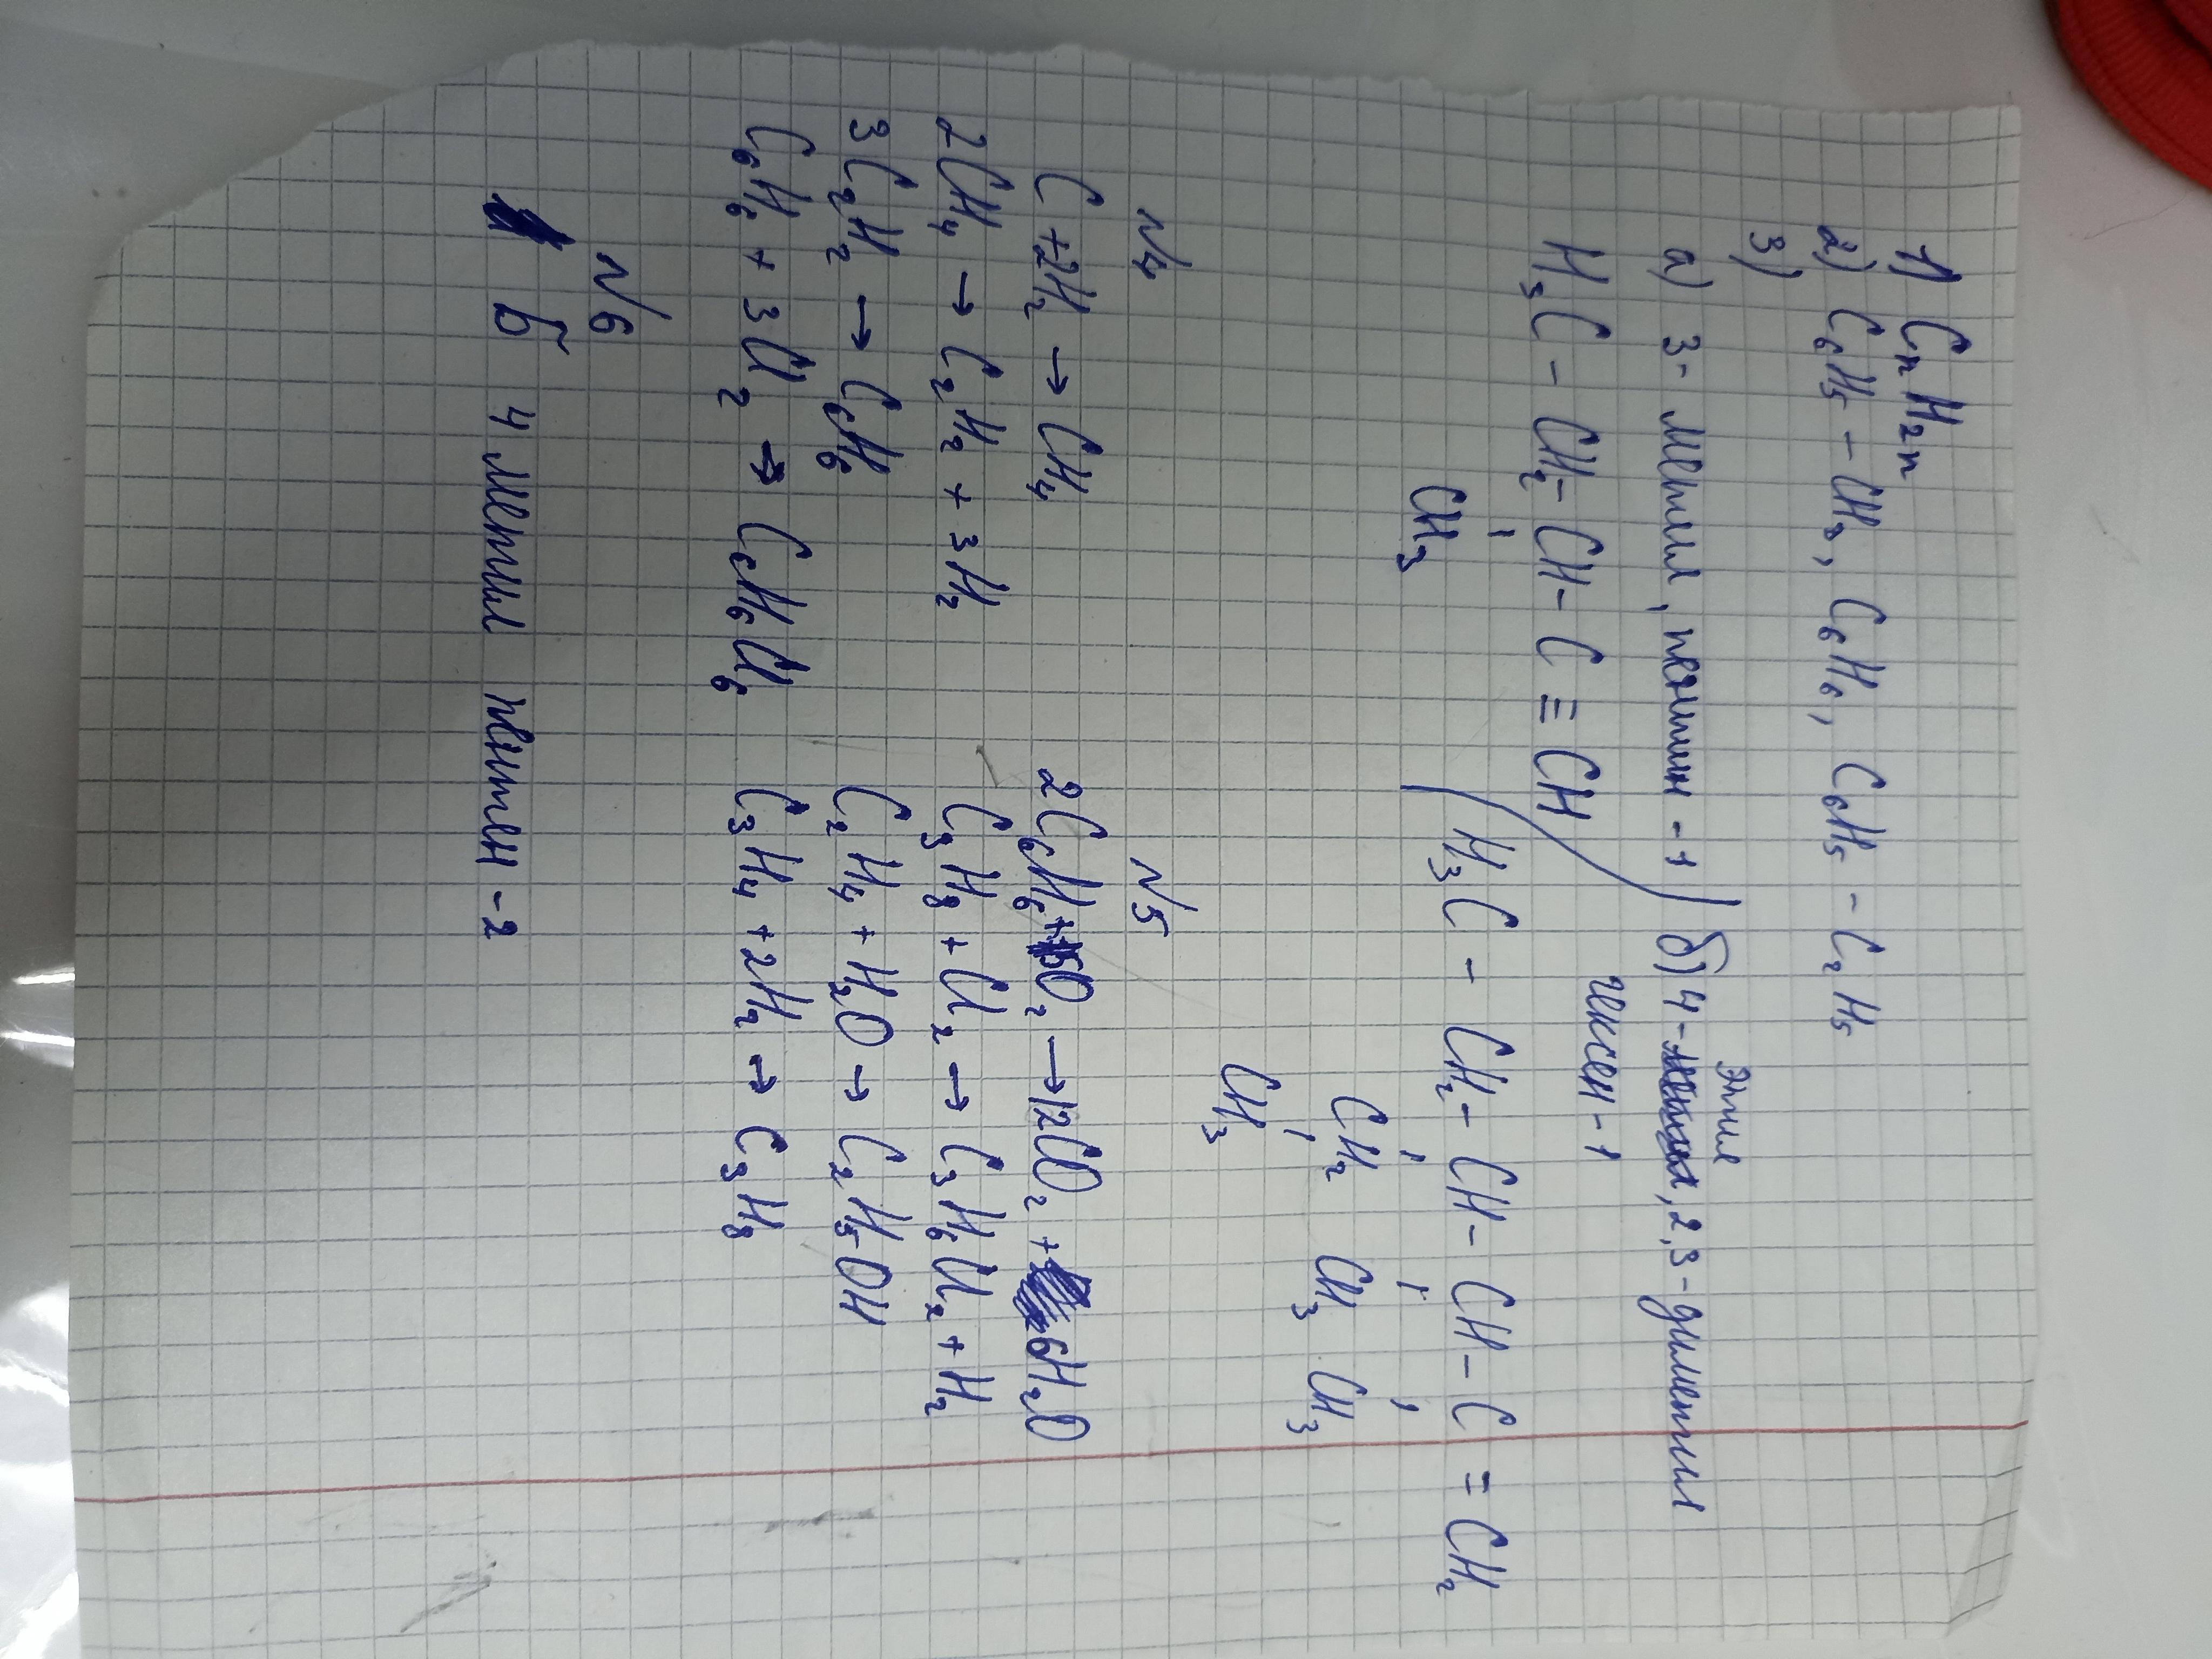 1) CnH2n
2) C6H5 - CH3, C6H6, C6H5 - C2H5
3)
а) 3-метил, пентин -1
H3C - CH2 - CH - C ≡ CH
CH3
этил
б) 4-, 2,3-диметил
гексен-1
H3C - CH2 - CH - CH - C = CH2
CH2 CH3 CH3
CH3
N4
C + 2H2 → CH4
2CH4 → C2H2 + 3H2
3C2H2 → C6H6
C6H6 + 3Cl2 → C6H6Cl6
N5
2C6H6 + 15O2 → 12CO2 + 6H2O
C3H8 + Cl2 → C3H6Cl2 + H2
C2H4 + H2O → C2H5OH
C3H4 + 2H2 → C3H8
N6
б 4 метил пентен -2